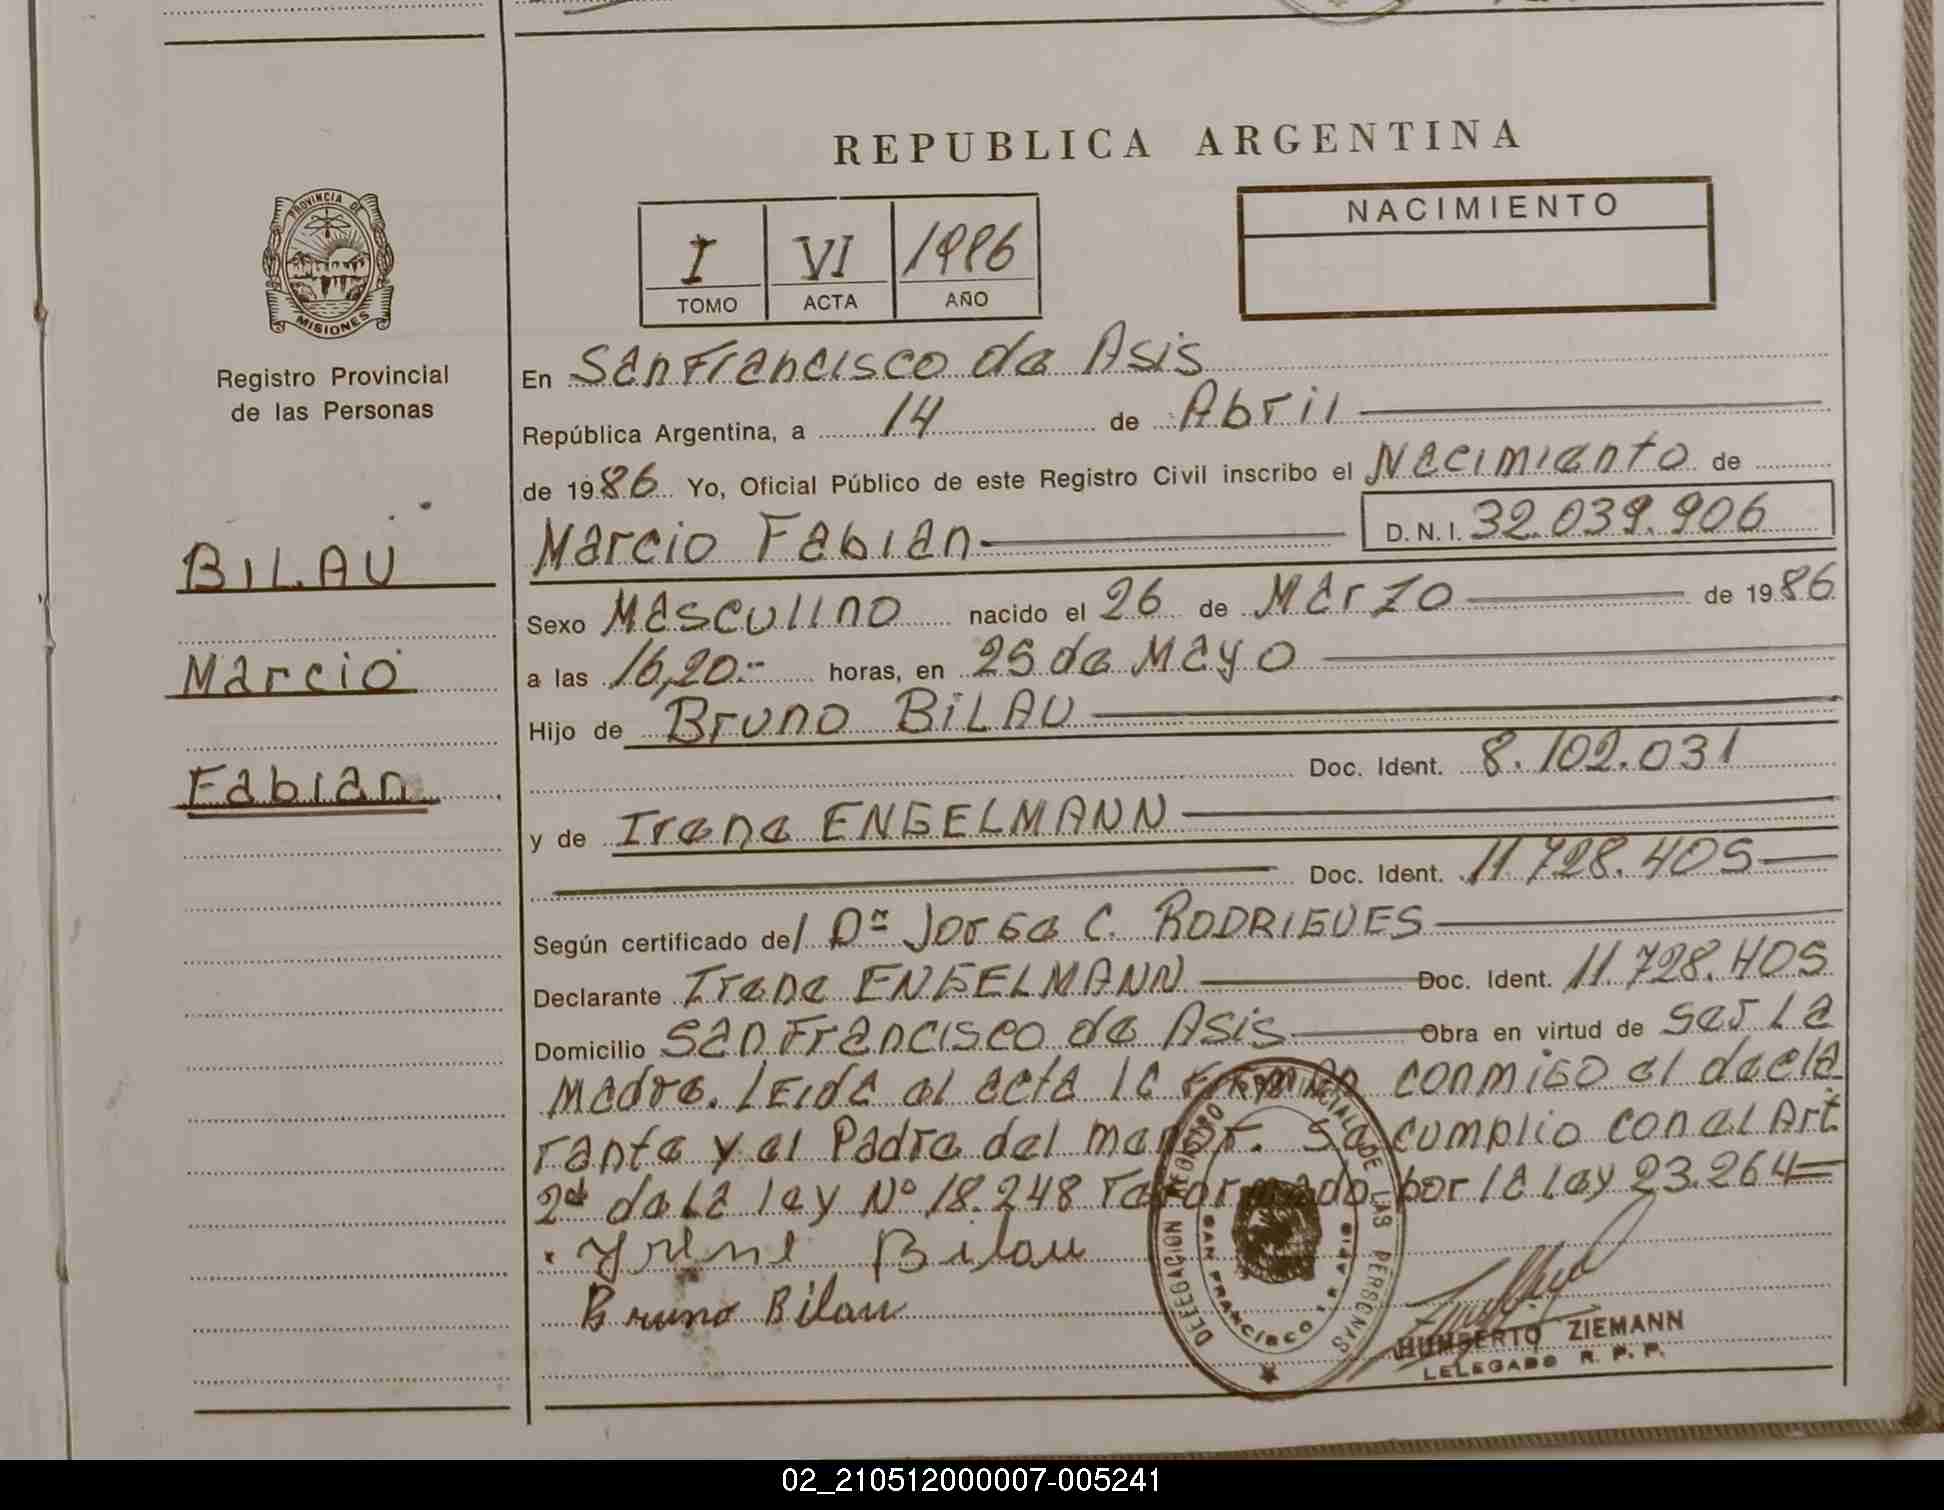 REPUBLICA ARGENTINA
PROVINCIA DE
MISIONES
Registro Provincial
de las Personas
BILAU
Marcio
Fabian
I VI 1986
TOMO ACTA AÑO
NACIMIENTO
En San Francisco de Asis
República Argentina, a 14 de Abril
de 1986 Yo, Oficial Público de este Registro Civil inscribo el Nacimiento de
Marcio Fabian D. N. I. 32.039.906
Sexo Masculino nacido el 26 de Marzo de 1986
a las 16,20.- horas, en 25 de Mayo
Hijo de Bruno BiLAU
Doc. Ident. 8.102.031
y de Irene ENGELMANN
Doc. Ident. 11.728.405
Según certificado del Dr Jorge C. RODRIGUES
Declarante Irene ENGELMANN Doc. Ident. 11.728.405
Domicilio San Francisco de Asis Obra en virtud de ser la
madre. LEida el acta la firman conmigo el decla
rante y el Padre del menor. Se cumplio con el Art
2do de la ley Nº 18.248 reformado por la ley 23.264
Yrene Bilau
Bruno Bilau
DELEGACION REGISTRO PROVINCIAL DE LAS PERSONAS
SAN FRANCISCO DE ASIS
HUMBERTO ZIEMANN
LELEGADO R. P. P.
02_210512000007-005241